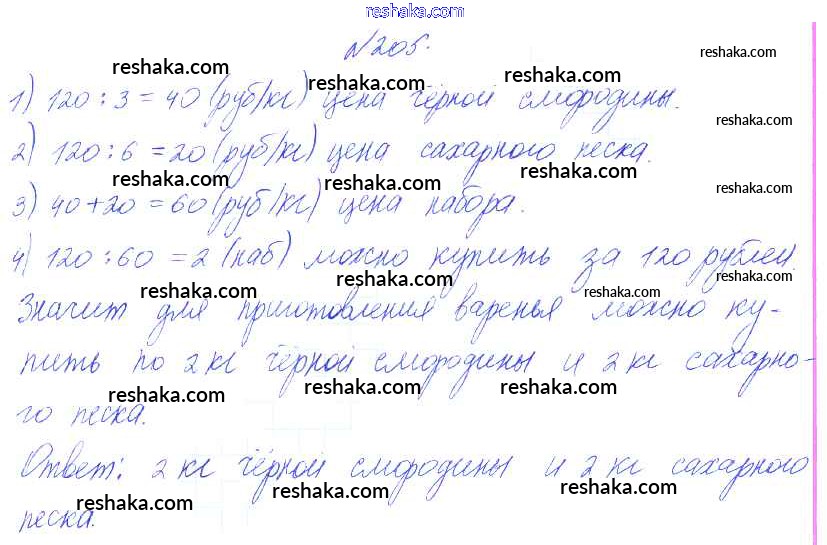 reshaka.com
№205.
reshaka.com reshaka.com
reshaka.com reshaka.com
1) 120 : 3 = 40 (руб/кг) цена чёрной смородины.
reshaka.com
reshaka.com reshaka.com reshaka.com
2) 120 : 6 = 20 (руб/кг) цена сахарного песка.
reshaka.com reshaka.com reshaka.com
3) 40 + 20 = 60 (руб/кг) цена набора.
reshaka.com reshaka.com
4) 120 : 60 = 2 (наб) можно купить за 120 рублей.
reshaka.com reshaka.com reshaka.com reshaka.com
Значит для приготовления варенья можно ку-
пить по 2 кг чёрной смородины и 2 кг сахарно-
reshaka.com reshaka.com reshaka.com
го песка.
Ответ: 2 кг чёрной смородины и 2 кг сахарного
reshaka.com reshaka.com reshaka.com
песка.